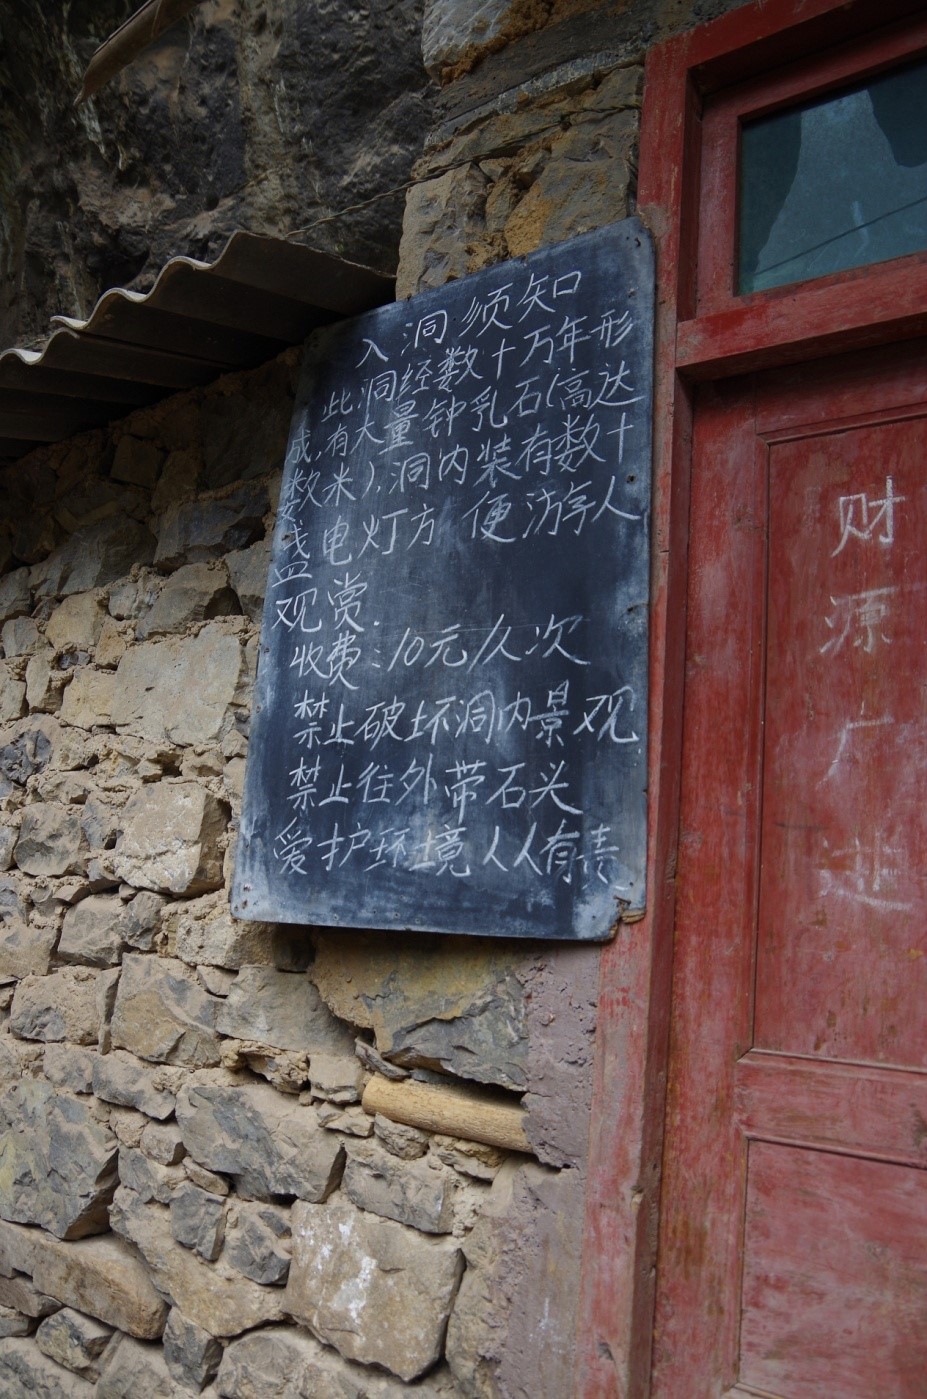 入洞须知
此洞经数十万年形
成,有大量钟乳石(高达
数米),洞内装有数十
盏电灯方便游人
观赏.
收费:10元/人次
禁止破坏洞内景观
禁止往外带石头
爱护环境人人有责
财源广进